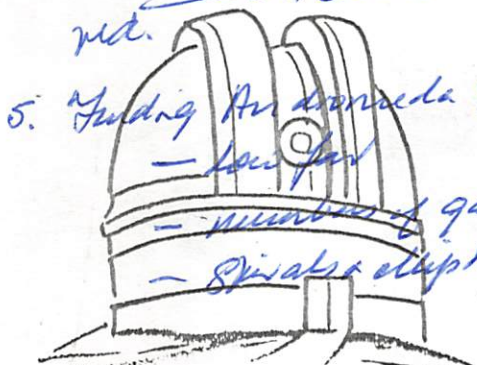 red.
5. Finding Andromeda
— how far
— numbers of ga
— Spirals & ellip